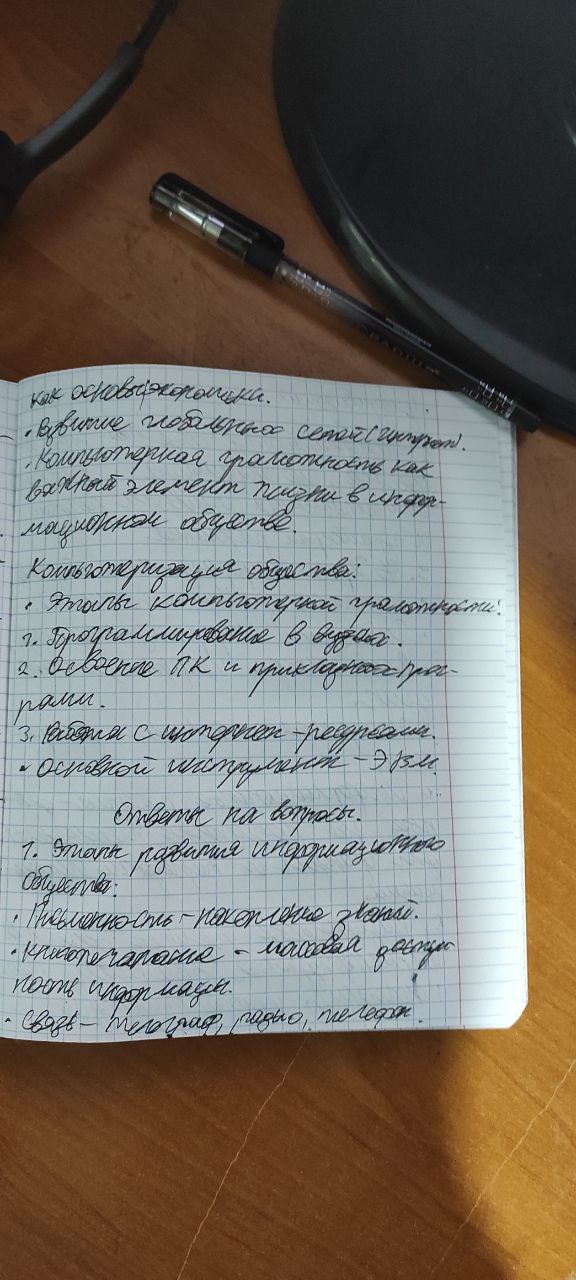 как основы экономики.
• Развитие глобальных сетей (Интернет).
• Компьютерная грамотность как
важный элемент жизни в инфор-
мационном обществе.
Компьютеризация общества:
• Этапы компьютерной грамотности:
1. Программирование в вузах.
2. Освоение ПК и прикладных прог-
рамм.
3. Работа с интернет-ресурсами.
• Основной инструмент - ЭВМ
Ответы на вопросы.
1. Этапы развития информационного
общества:
• Письменность - накопление знаний.
• Книгопечатание - массовая доступ-
ность информации.
• Связь - телеграф, радио, телефон.